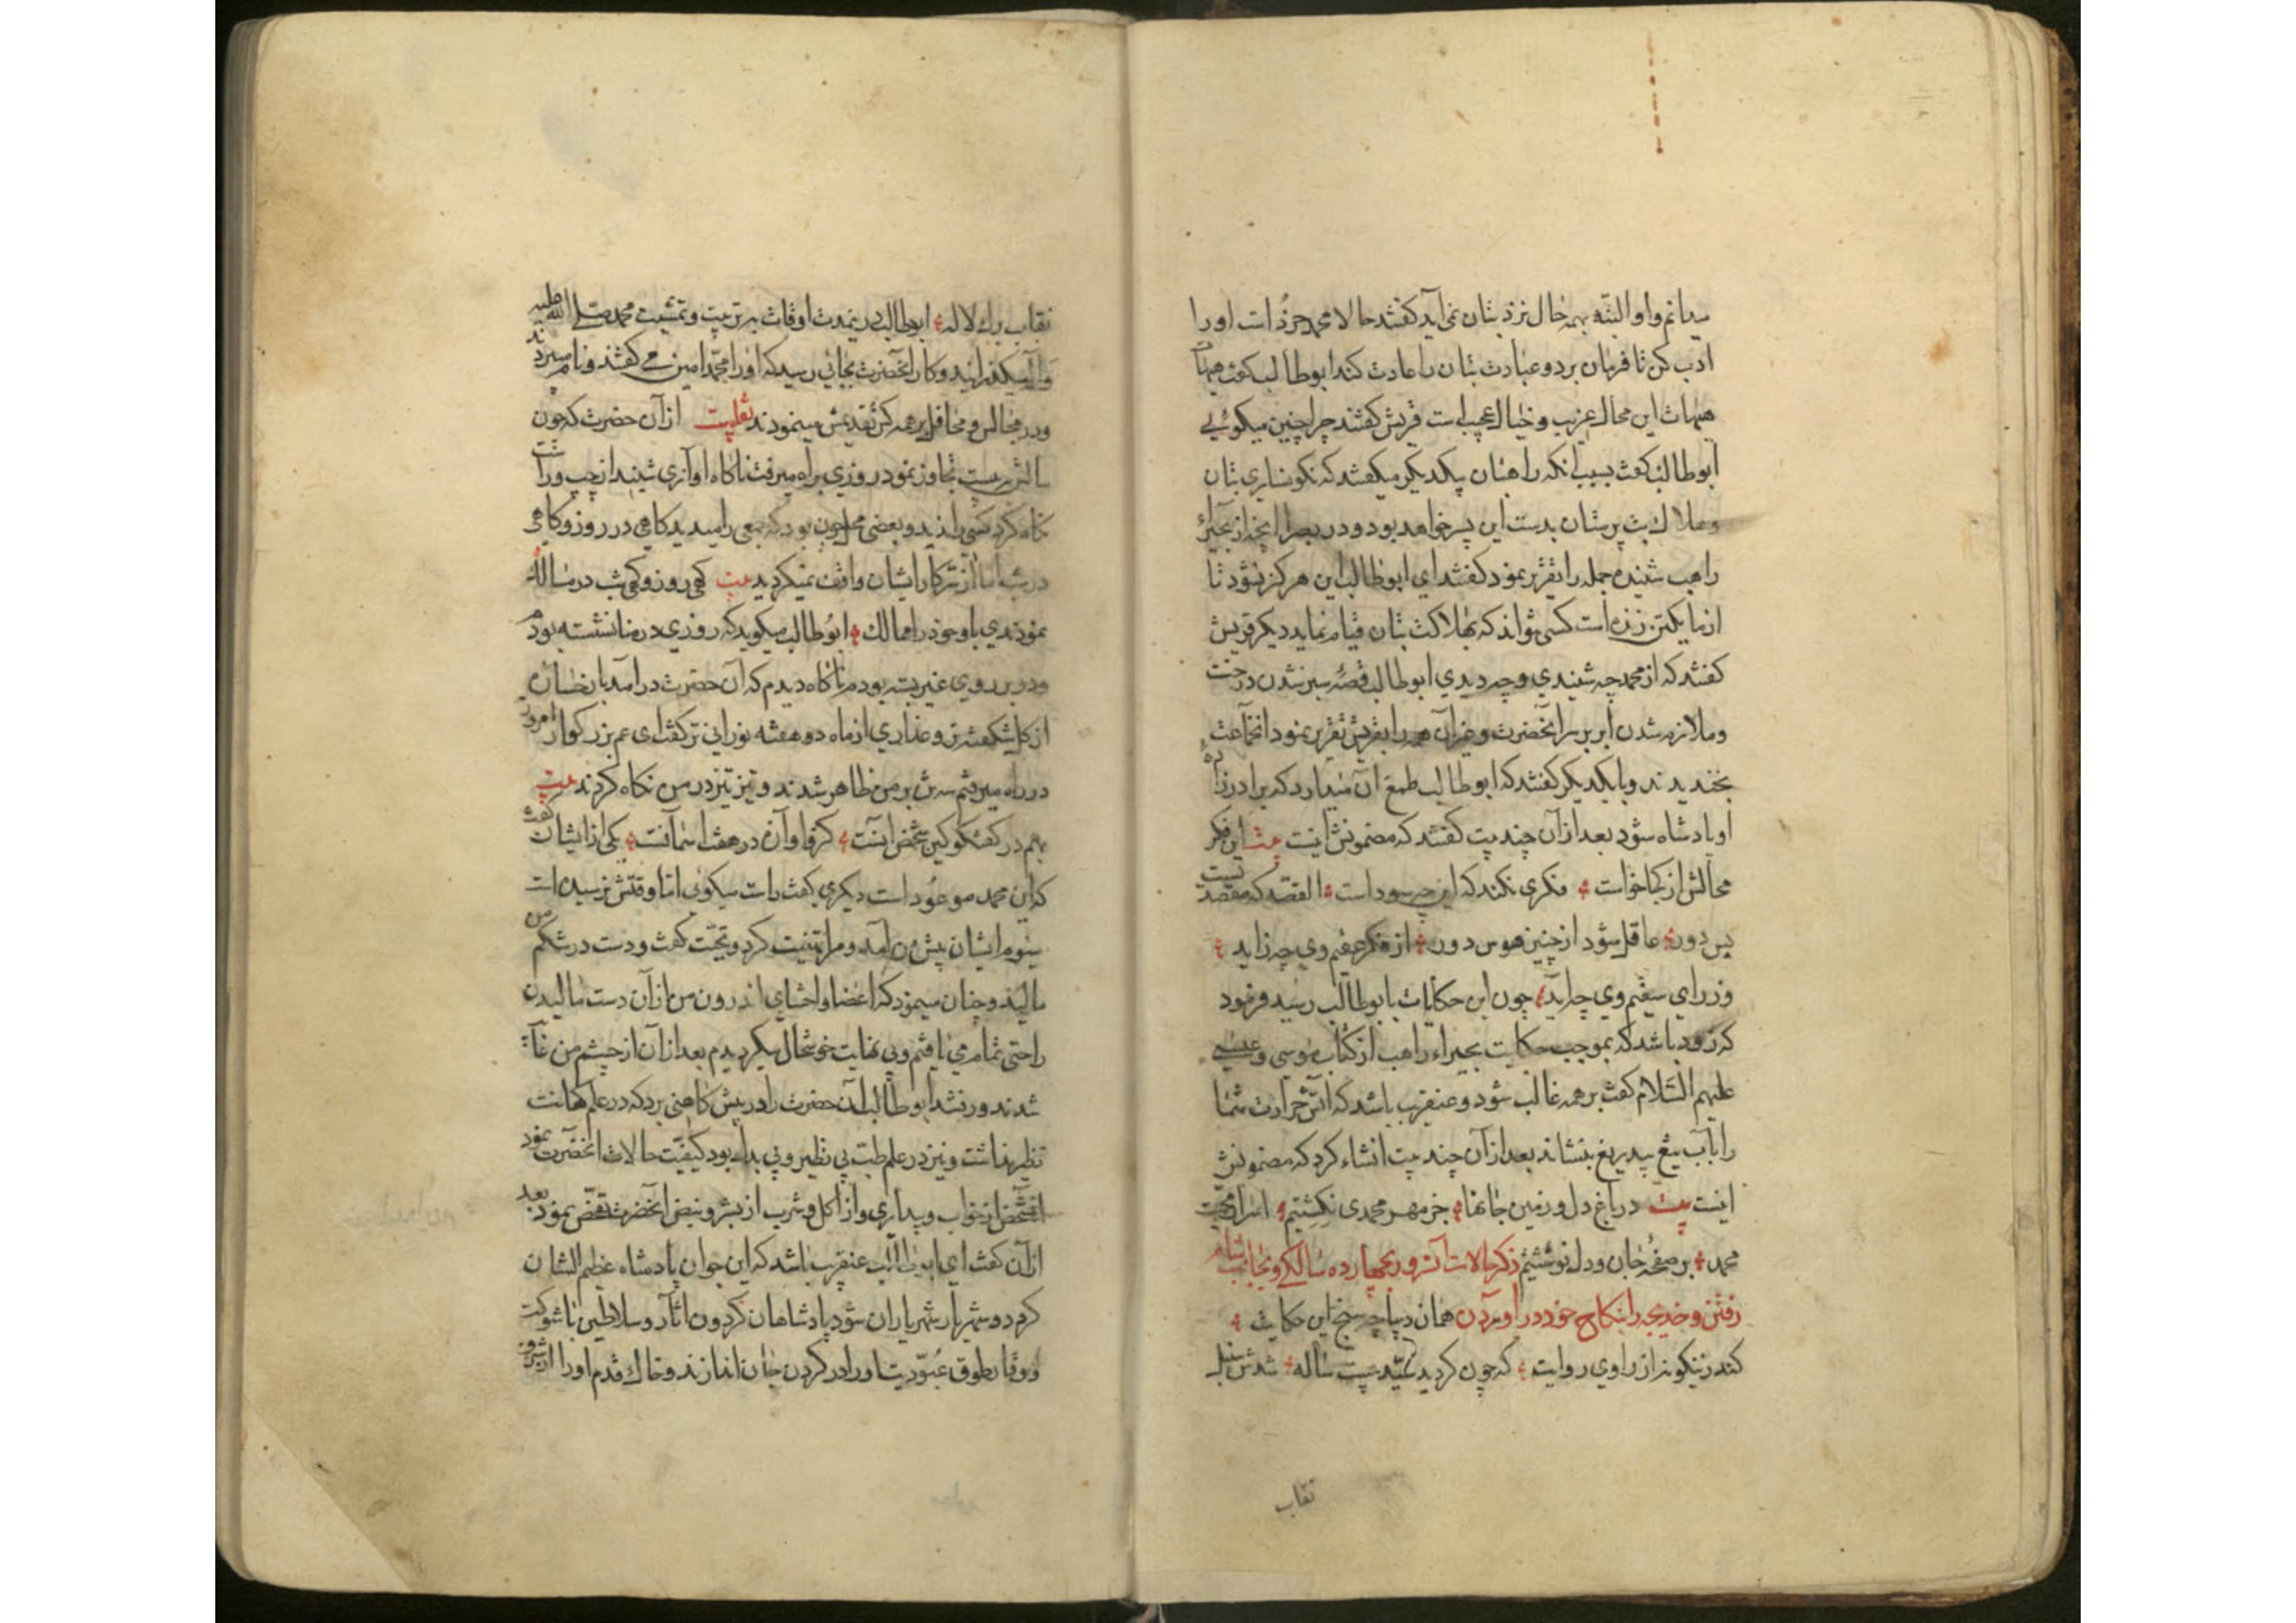 میدانم و او البته بهمه حال نزد بتان نمی آید گفتند حالا محمد خرد است او را
ادب کن تا فرمان برد و عبادت بتان را عادت کند ابوطالب گفت هیهات
هیهات این محال غریب و خیال عجیب است قریش گفتند چرا چنین میگوئی
ابوطالب گفت بسبب آنکه راهبان بیکدیگر میگفتند که نگونساری بتان
و هلاک بت پرستان بدست این پسر خواهد بود و در بصرا آنچه از بحیرا
راهب شنیده جمله را تقریر نمود گفتند ای ابوطالب این هرگز نشود تا
از ما یکتن زنده است کسی نتواند که بهلاکت بتان قیام نماید دیگر قریش
گفتند که از محمد چه شنیدی و چه دیدی ابوطالب قصه سبز شدن درخت
و ملازم شدن ابر بر سر آنحضرت و غیر آن همه را بقریش تقریر نمود آنجماعت
بخندیدند و با یکدیگر گفتند که ابوطالب طمع آن میدارد که برادرزاده
او پادشاه شود بعد از آن چند بیت گفتند که مضمونش اینست بیت این فکر
محالش از کجا خواست فکری نکند که این چه سود است القصه که مقصد نیست
بس دور عاقل نشود از چنین هوس دور از فکر عقیم وی چه زاید
وز رای سقیم وی چه آید چون این حکایات بابوطالب رسید فرمود
که زود باشد که بموجب حکایت بحیراء راهب از کتاب موسی و عیسی
علیهم السلام گفت بر همه غالب شود و عنقریب باشد که آتش حرارت شما
را بآب تیغ بیدریغ بنشاند بعد از آن چند بیت انشاء کرد که مضمونش
اینست بیت در باغ دل و زمین جانها جز مهر محمدی نکشتیم اسرار محبت
محمد بر صفحه جان و دل نوشتیم ذکر حالات آنسرور بچهارده سالگی و بجانب شام
رفتن و خدیجه را بنکاح خود در آوردن همان دیباچه سنج این حکایت
کند نیکو نه از راوی روایت که چون گردید سید بیست ساله شدش سنبل
نقاب
نقاب برک لاله ابوطالب درینمدت اوقات بر تربیت و تمشیت محمد صلی الله علیه
و آله میگذرانید و کار آنحضرت بجائی رسید که او را محمد امین می گفتند و نام میبردند
و در مجالس و محافل بر همه کس تقدیمش مینمودند نقلیست از آن حضرت که چون
سالش بر بیست تجاوز نمود روزی براه میرفت ناکاه آوازی شنید از چپ و راست
نکاه کرد کسی را ندید و بعضی محل چون بود که جمعی را میدید کاهی در روز و کاهی
در شب اما از سر کار ایشان واقف نمیکردید بیت کهی روز و کهی شب در مسالک
نمودندی باو خود را ممالک ابوطالب میکوید که روزی در خانه نشسته بودم
و در بروی غیر بسته بودم ناکاه دیدم که آن حضرت در آمد با رخساره
از کل شکفته تر و عذاری از ماه دو هفته نورانی تر گفت ای عم بزرکوار امروز
در راه میرفتم سه تن بر من ظاهر شدند و تیز تیز در من نکاه کردند بیت
بهم در گفتکو کین شخص اینست کز فا و آن در هفت اسمانست یکی از ایشان گفت
که این محمد موعود است دیکری گفت راست میکوی اما وقتش نرسیده است
سیوم ایشان پیش من آمد و مرا تهنیت کرد و تحیت گفت و دست در شکم من
مالید و چنان مینمود که اعضا و احشای اندرون من از آن دست مالیدن
راحتی تمام می یافتم و بی نهایت خوشحال میکردیدم بعد از آن از چشم من غائب
شدند و رفتند ابوطالب آن حضرت را در پیش کاهنی برد که در علم کهانت
نظیر نداشت و نیز در علم طب بی نظیر و بی بدل بود کیفیت حالات آنحضرت نمود
آنشخص از خواب و بیداری و از اکل و شرب از بشر و نبض آنحضرت تفحص نمود بعد
از آن گفت ای ابوطالب عنقریب باشد که این جوان پادشاه عظیم الشان
کردد و شهریار شهریاران شود پادشاهان کردون آثار و سلاطین با شوکت
و وقار طوق عبودیت او را در کردن جان اندازند و خاک قدم او را از شرف